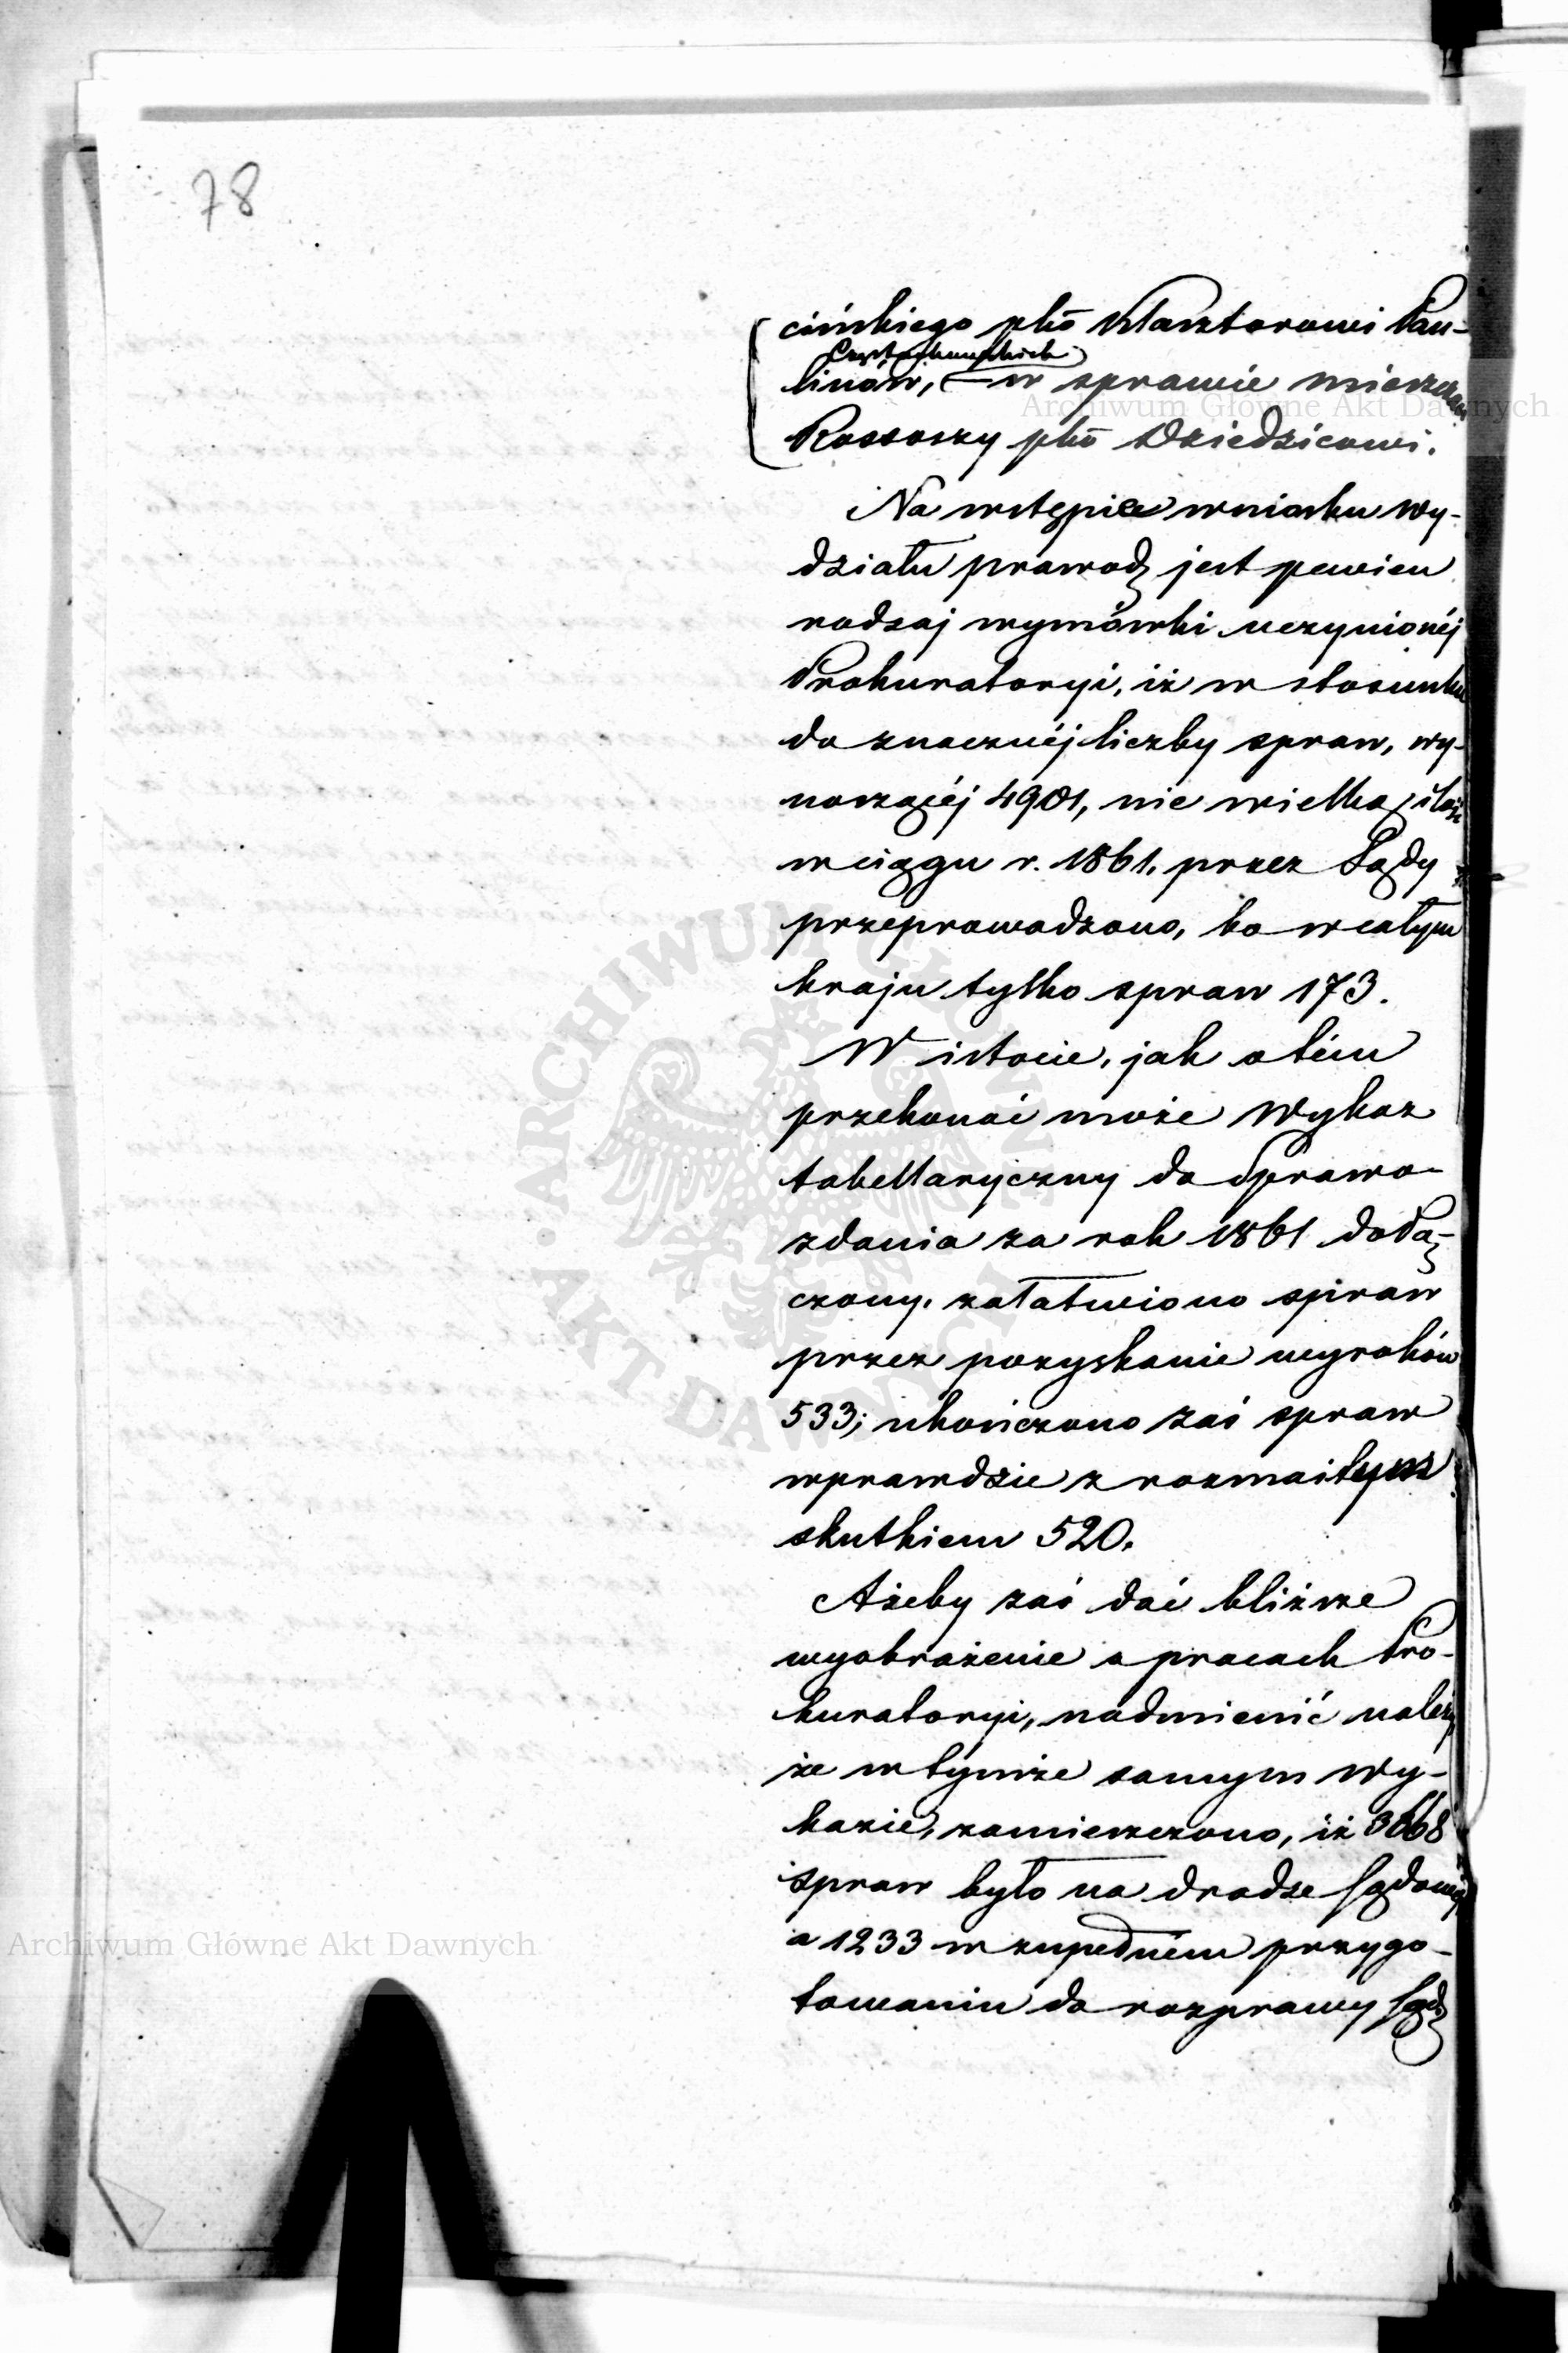 78
cińskiego pko Klasztorowi Pau-
Częstochowskich
linów, — w sprawie mieszczan
Rossoszy pko Dziedzicowi.
Na wstępie wniosku Wy-
działu prawod jest pewien
rodzaj wymówki uczynionéj
Prokuratoryi, iż w stosunku
do znacznéj liczby spraw, wy-
noszącéj 4901, nie wielką ilość
w ciągu r. 1861. przez Sądy
przeprowadzono, bo w całym
kraju tylko spraw 173.
W istocie, jak o tém
przekonać może Wykaz
tabellaryczny do Sprawo-
zdania za rok 1861 dołą-
czony, załatwiono spraw
przez pozyskanie wyroków
533; ukończono zaś spraw
wprawdzie z rozmaitym
skutkiem 520.
Ażeby zaś dać bliższe
wyobrażenie o pracach Pro-
kuratoryi, nadmienić należy
że w tymże samym Wy-
kazie, zamieszczono, iż 3668
spraw było na drodze sądowéj
a 1233 w zupełném przygo-
towaniu do rozprawy sąd
Archiwum Główne Akt Dawnych
Archiwum Główne Akt Dawnych
ARCHIWUM GŁÓWNE AKT DAWNYCH